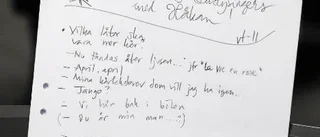 med Håkan!
vt-11
• Vilka låtar ska
vara mer kör:
- Nu tändas åter ljusen... jfr "La vie en rose"
- April, april
- Mina kärleksbrev dom vill jag ha igen...
- Tango?
- Vi här bak i bilen
- (Du är min man...?)